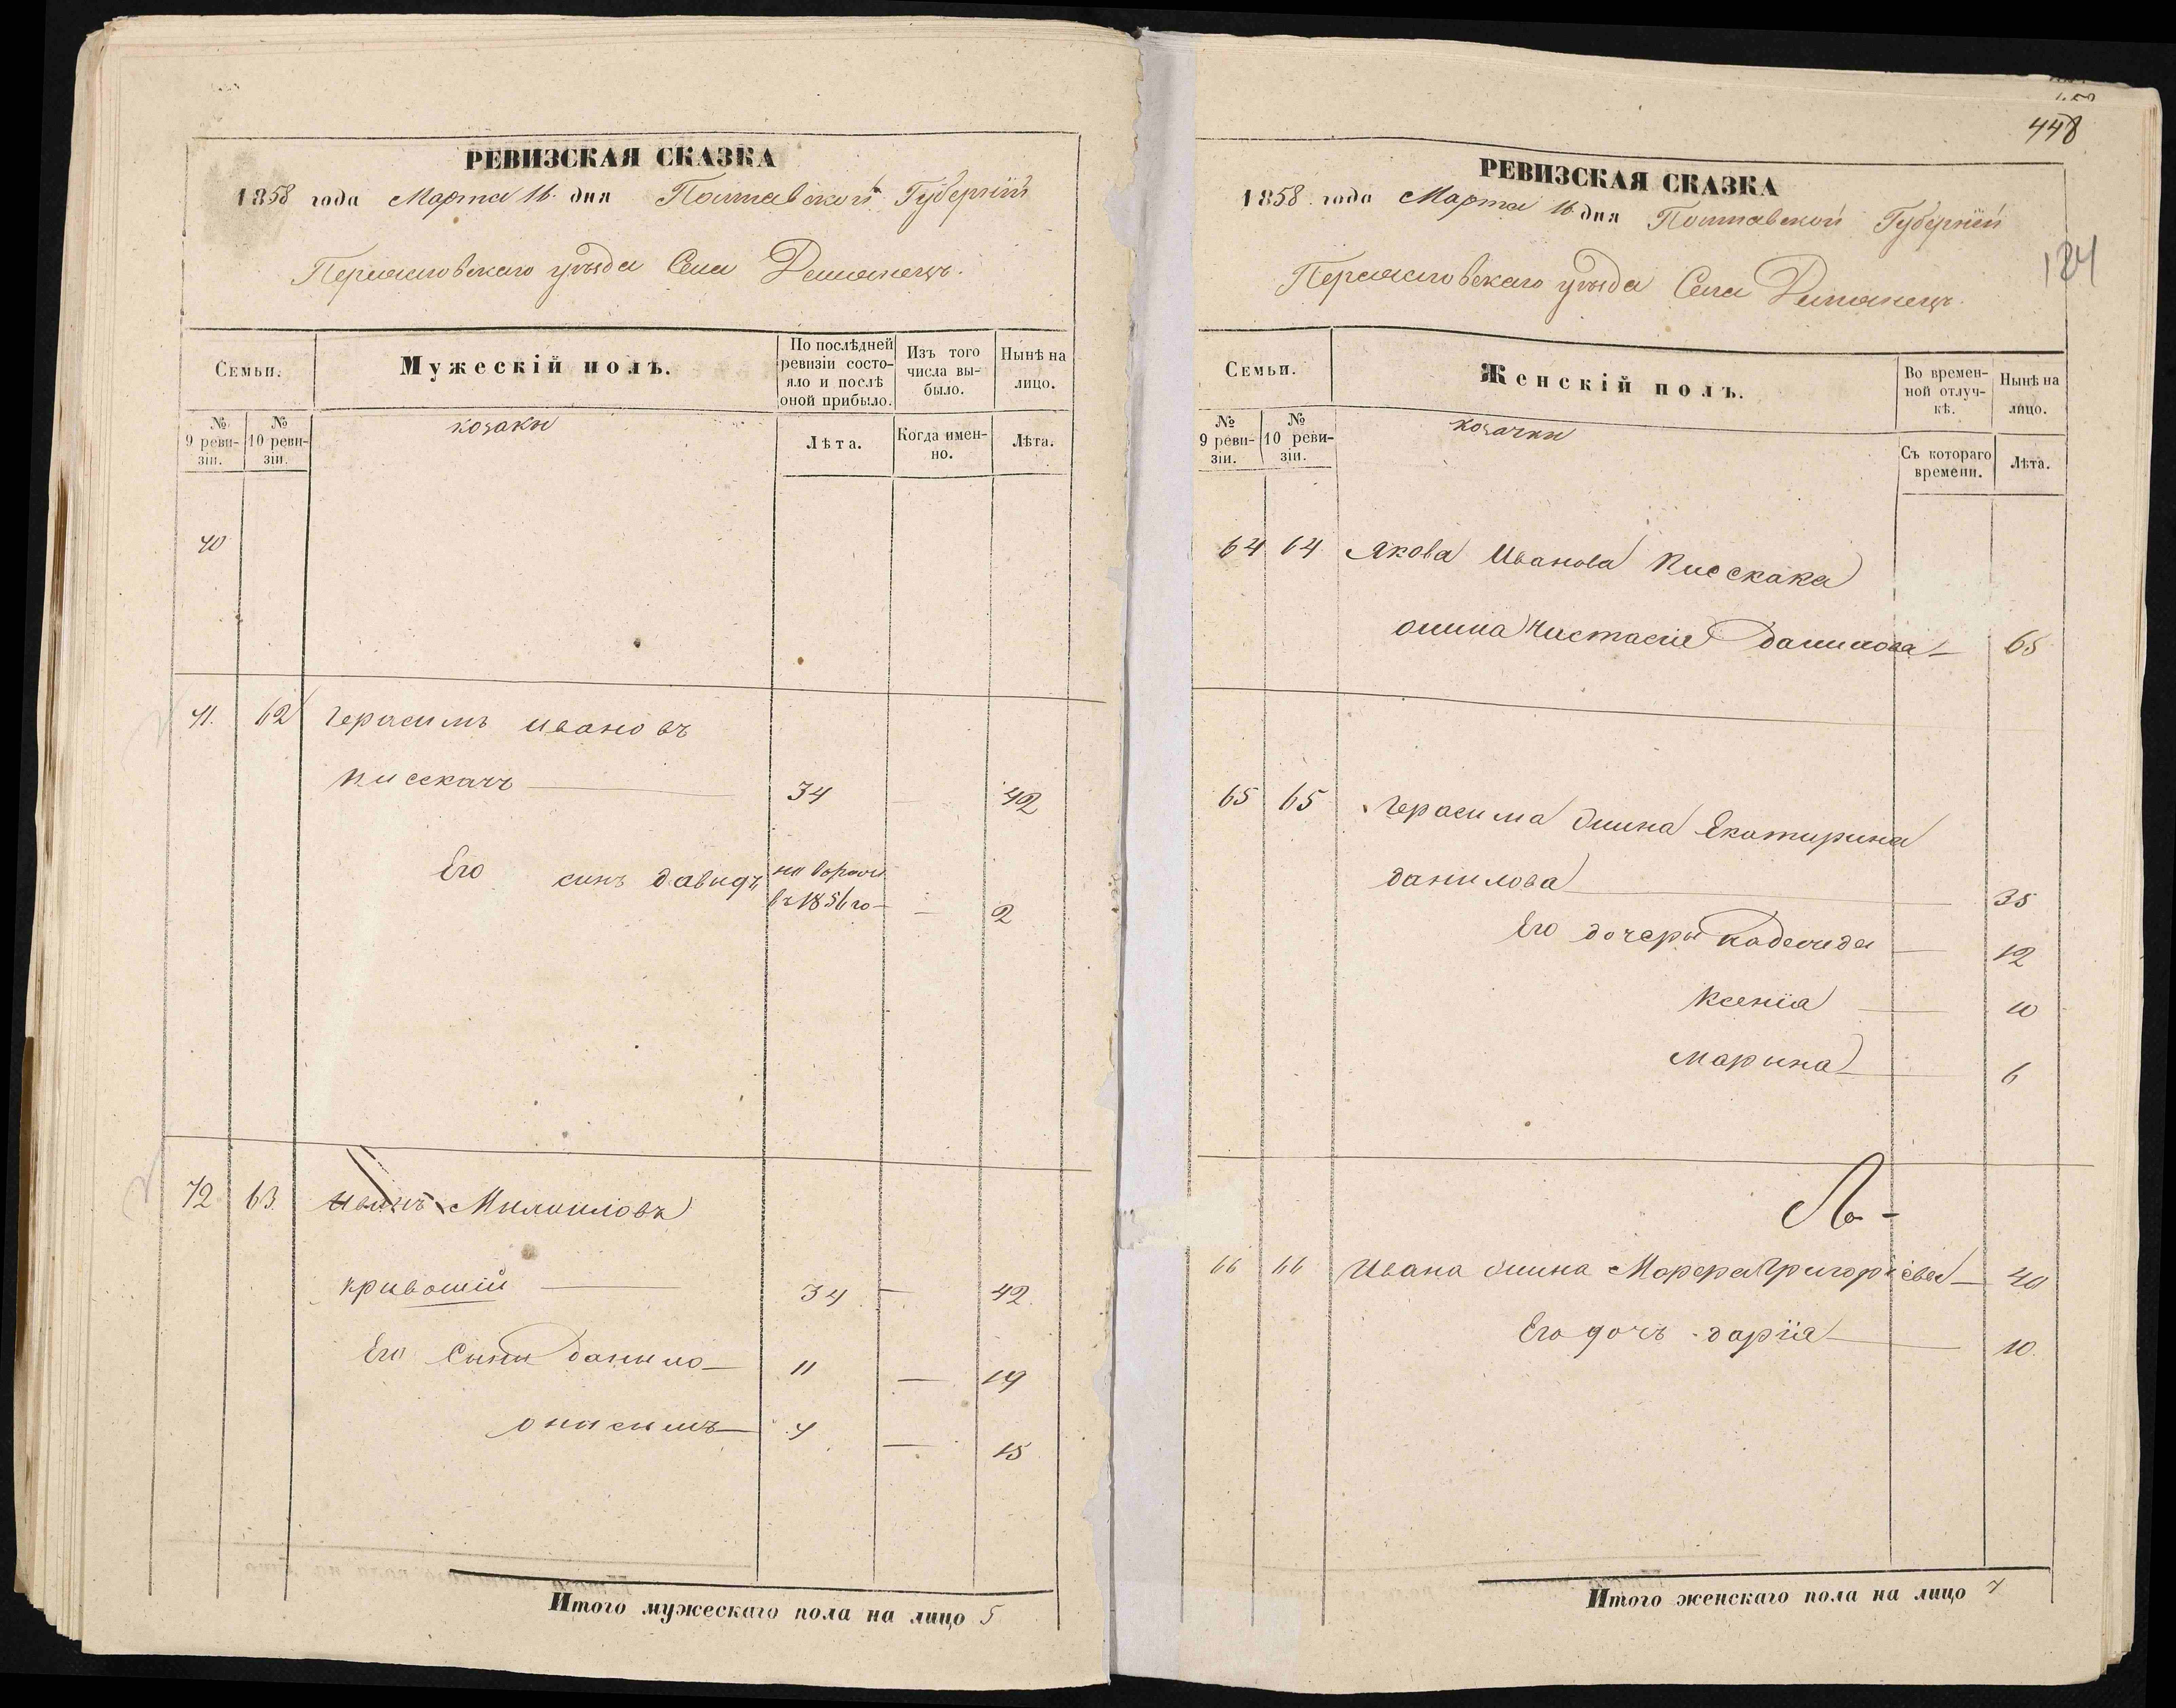 РЕВИЗСКАЯ СКАЗКА
1858 года Марта 16 дня Полтавской Губерніи
Переяславскаго уѣзда Села Демянецъ.
Семьи.
Мужескій полъ.
По послѣдней ревизіи состояло и послѣ оной прибыло.
Изъ того числа выбыло.
Нынѣ на лицо.
№ 9 ревизіи.
№ 10 ревизіи.
козаки
Лѣта.
Когда именно.
Лѣта.
70
71. 62 Герасимъ Ивановъ
Кисскачъ — 34 — 42
Его синъ давидъ
въ 1856 го — — 2
72 63. Иванъ
кривошій — 34 — 42.
Его Сини данило — 11 — 19
онисимъ — 7 — 15
Итого мужескаго пола на лицо 5
448
РЕВИЗСКАЯ СКАЗКА
1858 года Марта 16 дня Полтавской Губерніи
184
Переяславскаго уѣзда Села Демянецъ.
Семьи.
Женскій полъ.
Во временной отлучкѣ.
Нынѣ на лицо.
№ 9 ревизіи.
№ 10 ревизіи.
козачки
Съ котораго времени.
Лѣта.
64 64 Якова Иванова
данилова — 65
65 65 Герасима Екатирина
данилова — 35
Его дочери — 12
Ксенія — 10
марина — 6
66 66 Ивана Григоріева — 40
Его дочь дарія — 10.
Итого женскаго пола на лицо 7